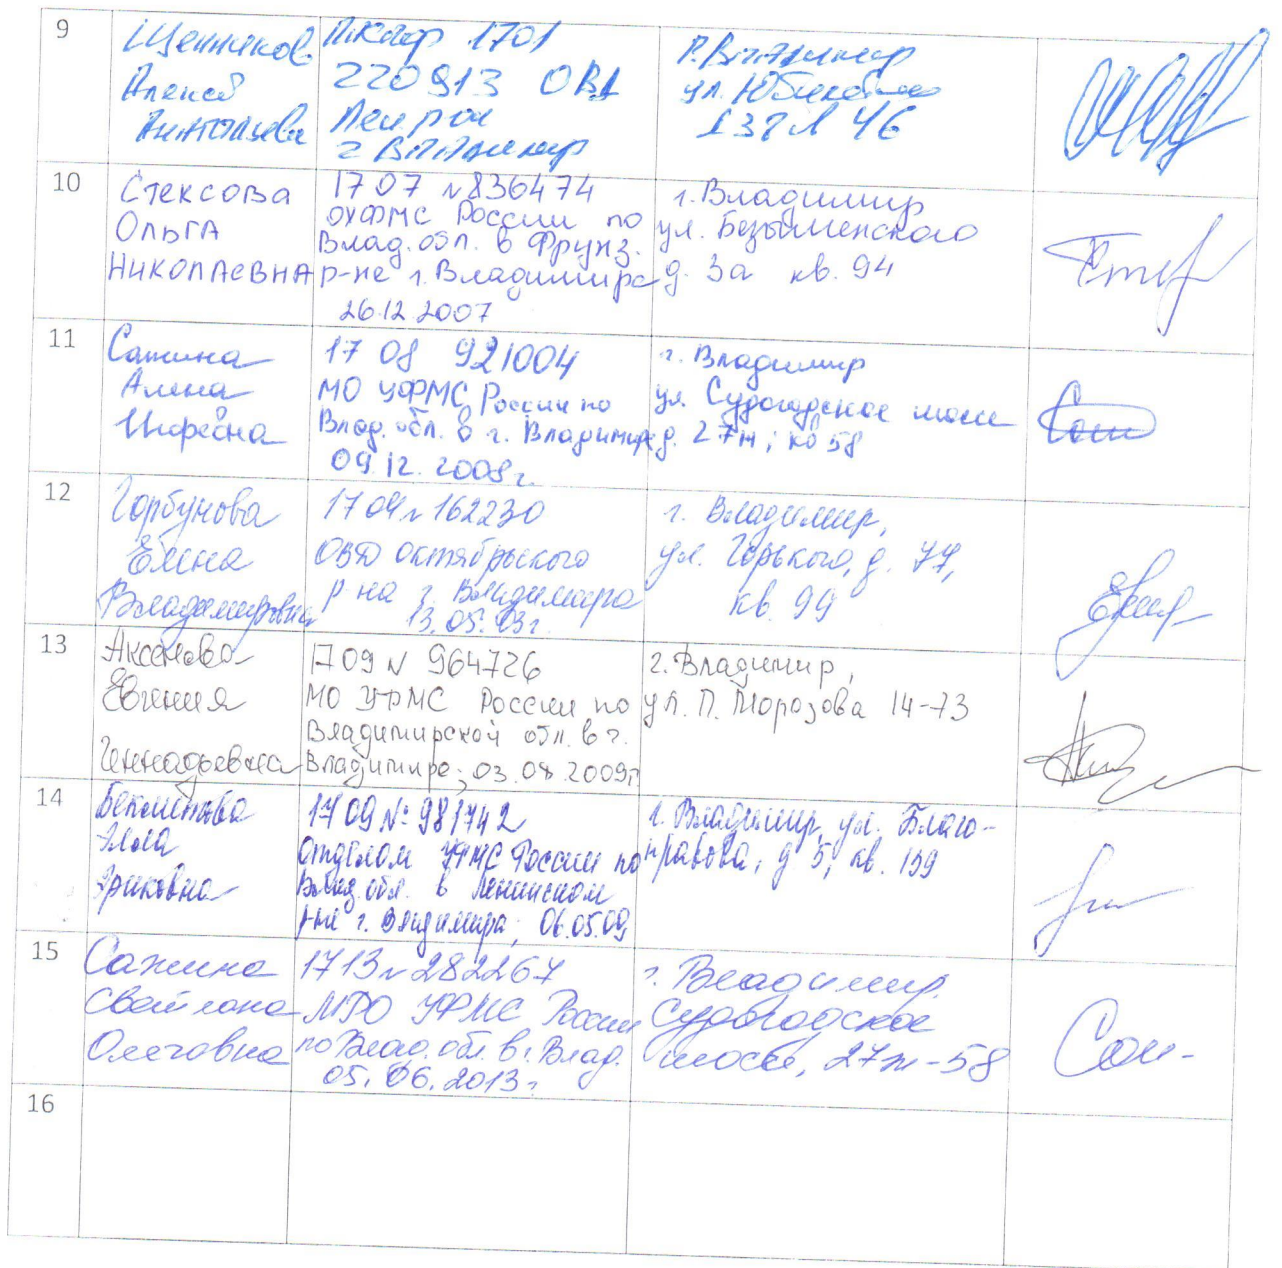 9
Щенников
Алексей
Анатольевич
1701
220913 ОВД
Лен р он
г Владимир
г. Владимир
ул. Юбилейная
46
10
Стексова
Ольга
Николаевна
1707 №836474
ОУФМС России по
Влад. обл. в Фрунз.
р-не г. Владимира
26.12.2007
г. Владимир
ул. Безыменского
д. 3а кв. 94
11
Сажина
Алена
17 08 921004
МО УФМС России по
Влад. обл. в г. Владимире
09.12.2008г.
г. Владимир
ул. Судогодское шоссе
д. 27ж, кв 58
12
Горбунова
Елена
Владимировна
1704 № 162230
ОВД Октябрьского
р-на г. Владимира
13.05.03г.
г. Владимир,
ул. Горького, д. 77,
кв. 99
13
Аксенова
Евгения
Геннадьевна
1709 № 964726
МО УФМС России по
Владимирской обл. в г.
Владимире, 03.04.2009г.
г. Владимир,
ул. П. Морозова 14-73
14
Элла
Эриковна
1709 № 981742
отделом УФМС России по
Влад. обл. в Ленинском
р-не г. Владимира, 06.05.09
г. Владимир, ул. Благо-
нравова, д 5, кв. 159
15
Сажина
Светлана
Олеговна
1713 № 282267
МРО УФМС России
по Влад. обл. в г. Влад.
05.06.2013г
г. Владимир.
Судогодское
шоссе, 27ж-58
16